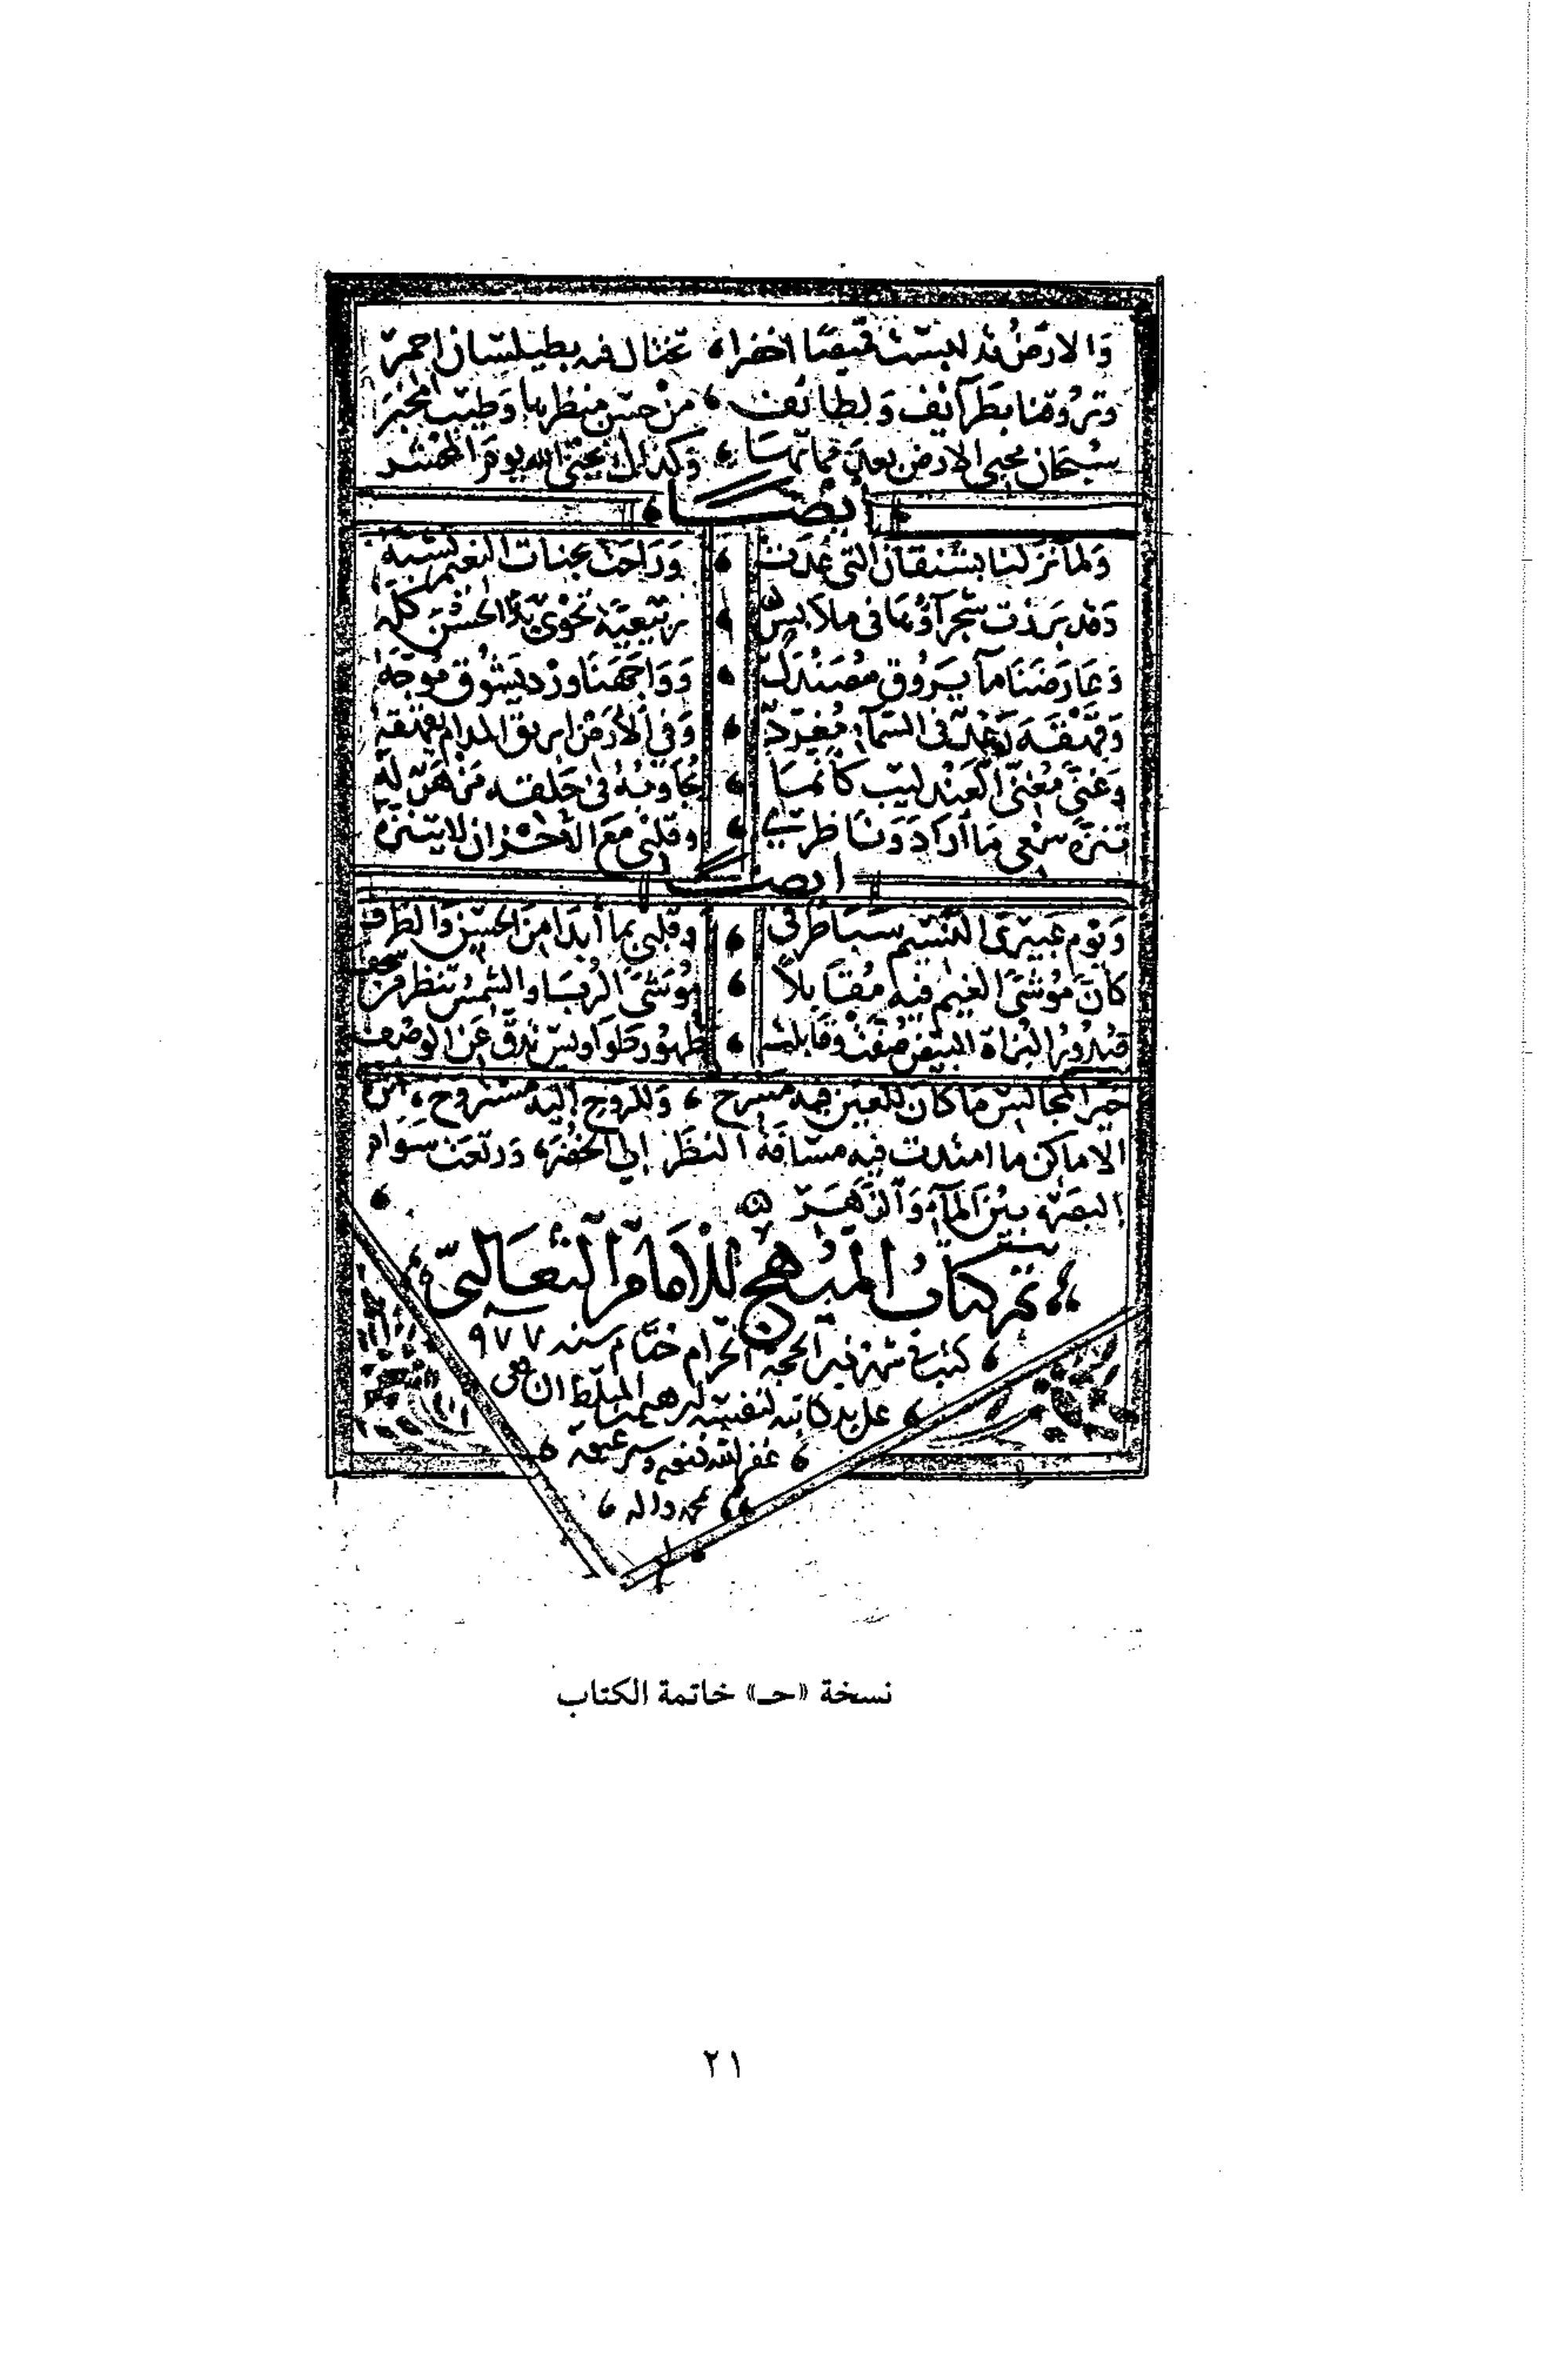 وَالارَضُ قد لبست قميصًا اخضرا، تختال فيه بطيلسان احمر
وتروقنا بطرآئف ولطائف، من حسن منظرها وطيب المخبر
سبحان محيي الارض بعد مماتها، وكذاك يحيي الله يوم المحشر
ايضا
ولما نزلنا بشنقان التي غدت، وراحت بجنات النعيم تشبه
وقد برزت شجرآؤها في ملابس، ربيعية تحوي بها الحسن كله
وعارضنا مآ يروق مصندل، وواجهنا ورد يشوق موجه
وقهقه رعد في السمآء مغرد، وفي الارض ابريق المدام يقهقه
وغنى مغني العندليب كانما، يجاوبه في حلقه
تنزه سمعي ما اراد وناظري، وقلبي مع الاحزان لا يتنزه
ايضا
ويوم عبيري النسيم سبا طرفي، وقلبي بما أبدا من الحسن والظرف
كان موشى الغيم فيه مقابلاً، موشى الربا والشمس تنظر من سجف
صدور البزاة البيض صفت وقابلت، ظهور طواويس تدق عن الوصف
خير المجالس ما كان للعين فيه مسرح، وللروح اليه مستروح،
الاماكن ما امتدت فيه مسافة النظر الي الخضرة، ورتعت سوام
البصر بين المآء والزهر
تم كتاب المبهج للامام الثعالبي
كتب في شهر ذي الحجة الحرام ختام سنه ٩٧٧
على يد كاتبه لنفسه ابرهيم
غفر الله ذنوبه وستر عيوبه
بمحمد واله
نسخة «حـ» خاتمة الكتاب
٢١